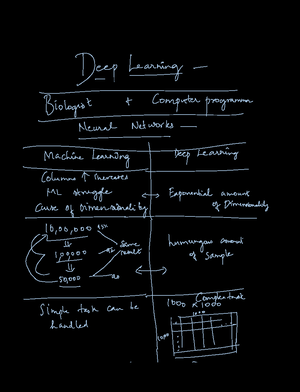 Deep Learning -
Biologist + Computer programm
Neural Networks -
Machine Learning
Deep Learning
Columns ↑ increases
ML struggle
Curse of Dimensionality
↔ Exponential amount
of Dimensionality
10,00,000
1,00000
50,000
same
result
↔ humungous amount
of Sample
Simple task can be
handled
Complex task
1000 x 1000
1000
1000